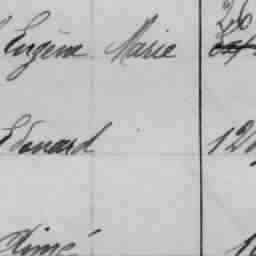 Eugène Marie
Edouard 12
Aimé 1